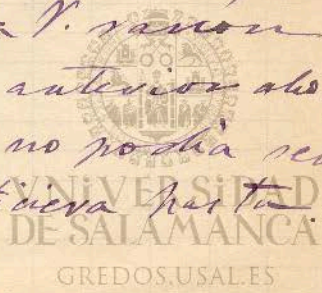 V. razón
anterior aho
no podía se
hasta
VNiVERSiDAD
DE SALAMANCA
GREDOS.USAL.ES